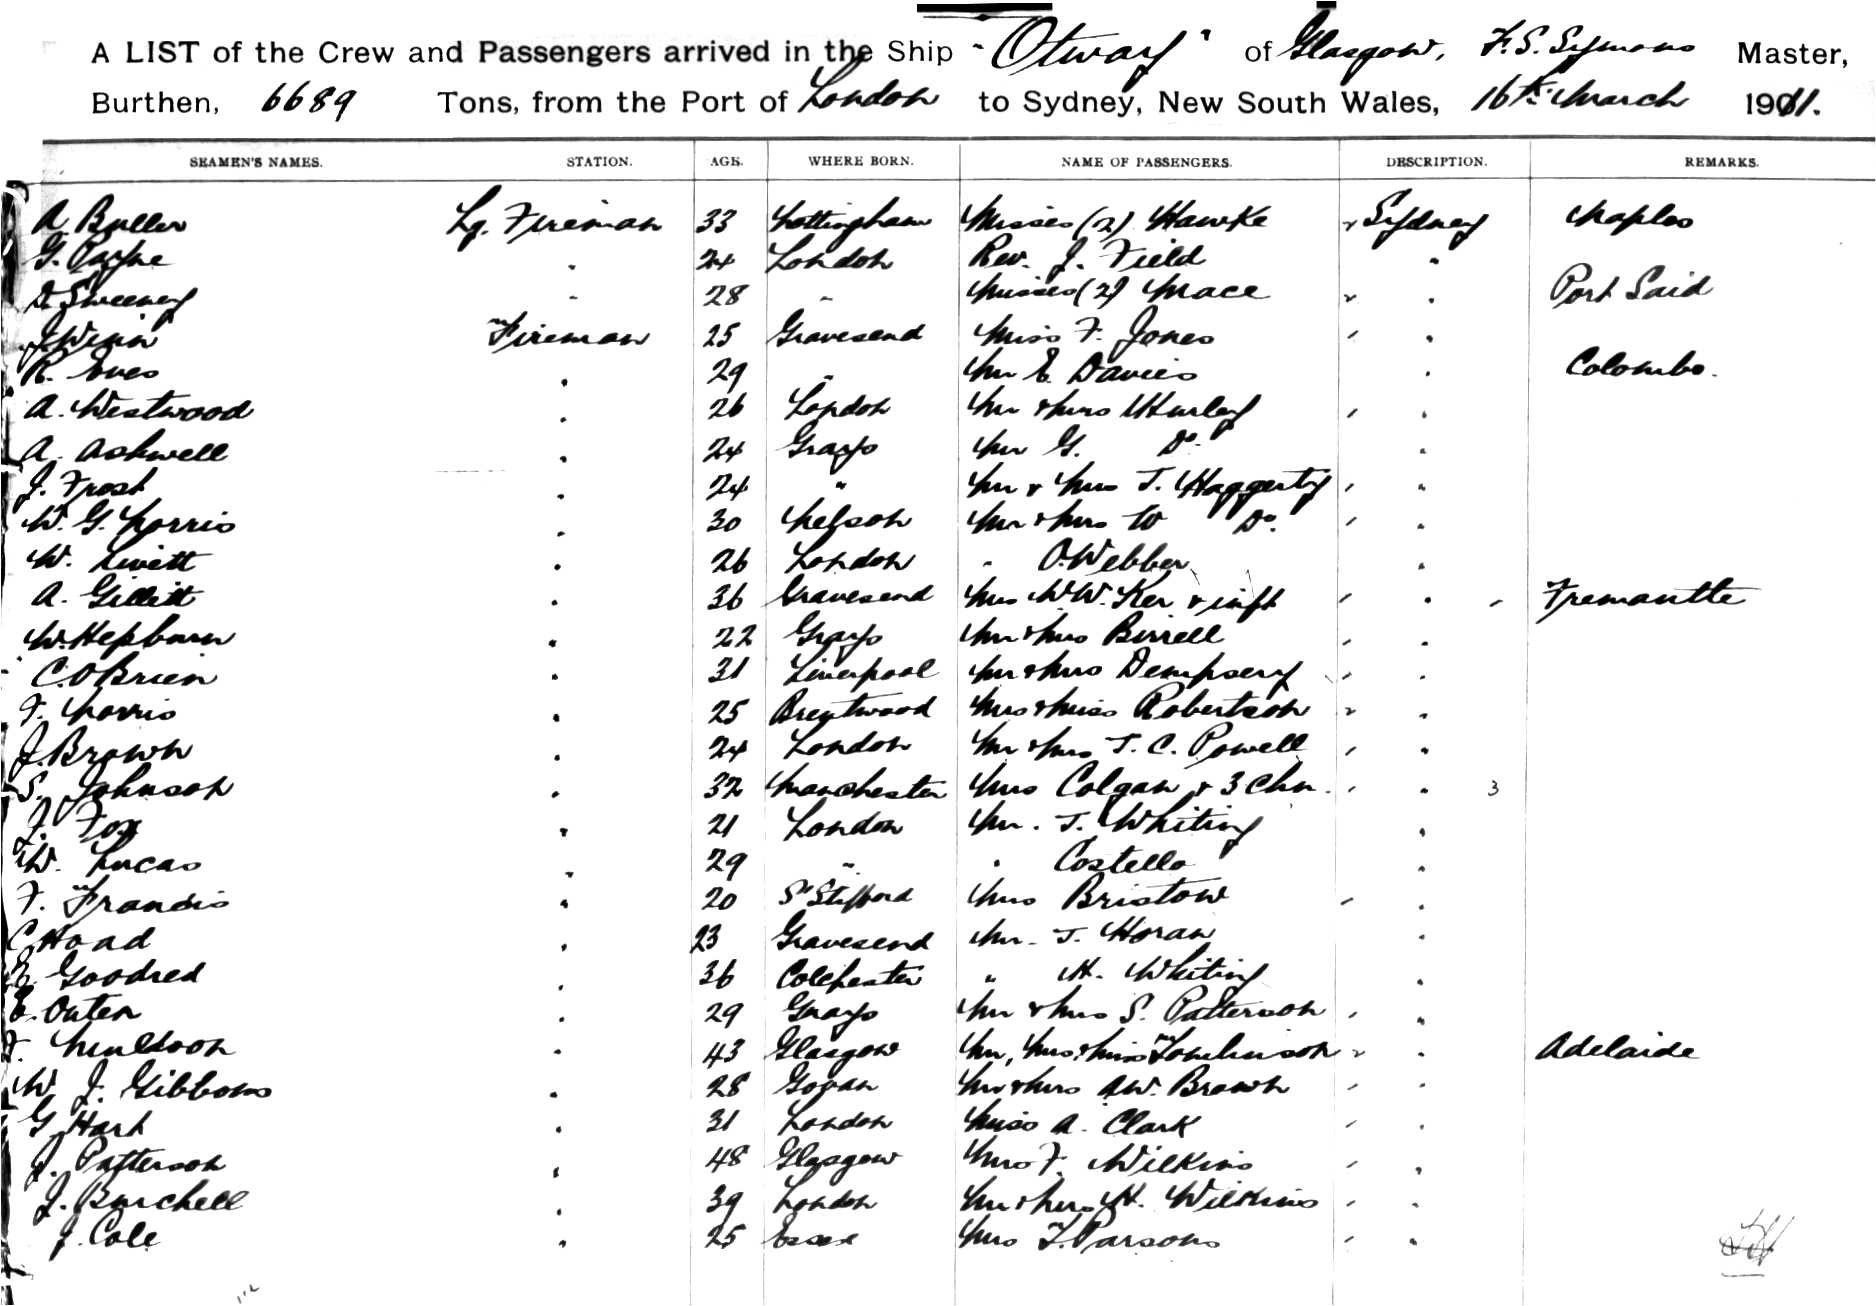 A LIST of the Crew and Passengers arrived in the Ship "Otway" of Glasgow, F. S. Symons Master,
Burthen, 6689 Tons, from the Port of London to Sydney, New South Wales, 16th March 1911.
SEAMEN'S NAMES. STATION. AGE. WHERE BORN. NAME OF PASSENGERS. DESCRIPTION. REMARKS.
A Buller Lg. Fireman 33 Nottingham Misses (2) Hawke Sydney Naples
G. Payne " 24 London Rev. J. Field "
D. Sweeney " 28 " Misses (2) Mace " Port Said
J. Winn Fireman 25 Gravesend Miss F. Jones "
R. Eves " 29 " Mr E. Davies " Colombo.
A. Westwood " 26 London Mr & Mrs Hurley "
A. Ashwell " 24 Grays Mr G. Do. "
J. Frost " 24 " Mr & Mrs T. Haggerty "
W. G. Norris " 30 Nelson Mr & Mrs W Do. "
W. Livett " 26 London " O. Webber "
A. Gillett " 36 Gravesend Mrs W. W. Ker & inft " Fremantle
W. Hepburn " 22 Grays Mr & Mrs Birrell "
C. O'Brien " 31 Liverpool Mr & Mrs Dempsey "
F. Norris " 25 Brentwood Mrs & Miss Robertson "
J. Brown " 24 London Mr & Mrs T. C. Powell "
S. Johnson " 32 Manchester Mrs Colgan & 3 Chn. " 3
Fox " 21 London Mr. T. Whiting "
W. Lucas " 29 " " Costello "
F. Francis " 20 S. Stifford Mrs Bristow "
C. Hoad " 23 Gravesend Mr. T. Horan "
E. Goodred " 36 Colchester " H. Whiting "
E. Outen " 29 Grays Mr & Mrs S. Patterson "
F. Muldoon " 43 Glasgow Mr, Mrs & Miss Tomlinson " Adelaide
W J. Gibbons " 28 Govan Mr & Mrs A. W. Brown "
G. Hart " 31 London Miss A. Clark "
J. Patterson " 48 Glasgow Mrs F. Wilkins "
J. Burchell " 39 London Mr & Mrs H. Wilkins "
J. Cole " 25 Essex Mrs F. Parsons "